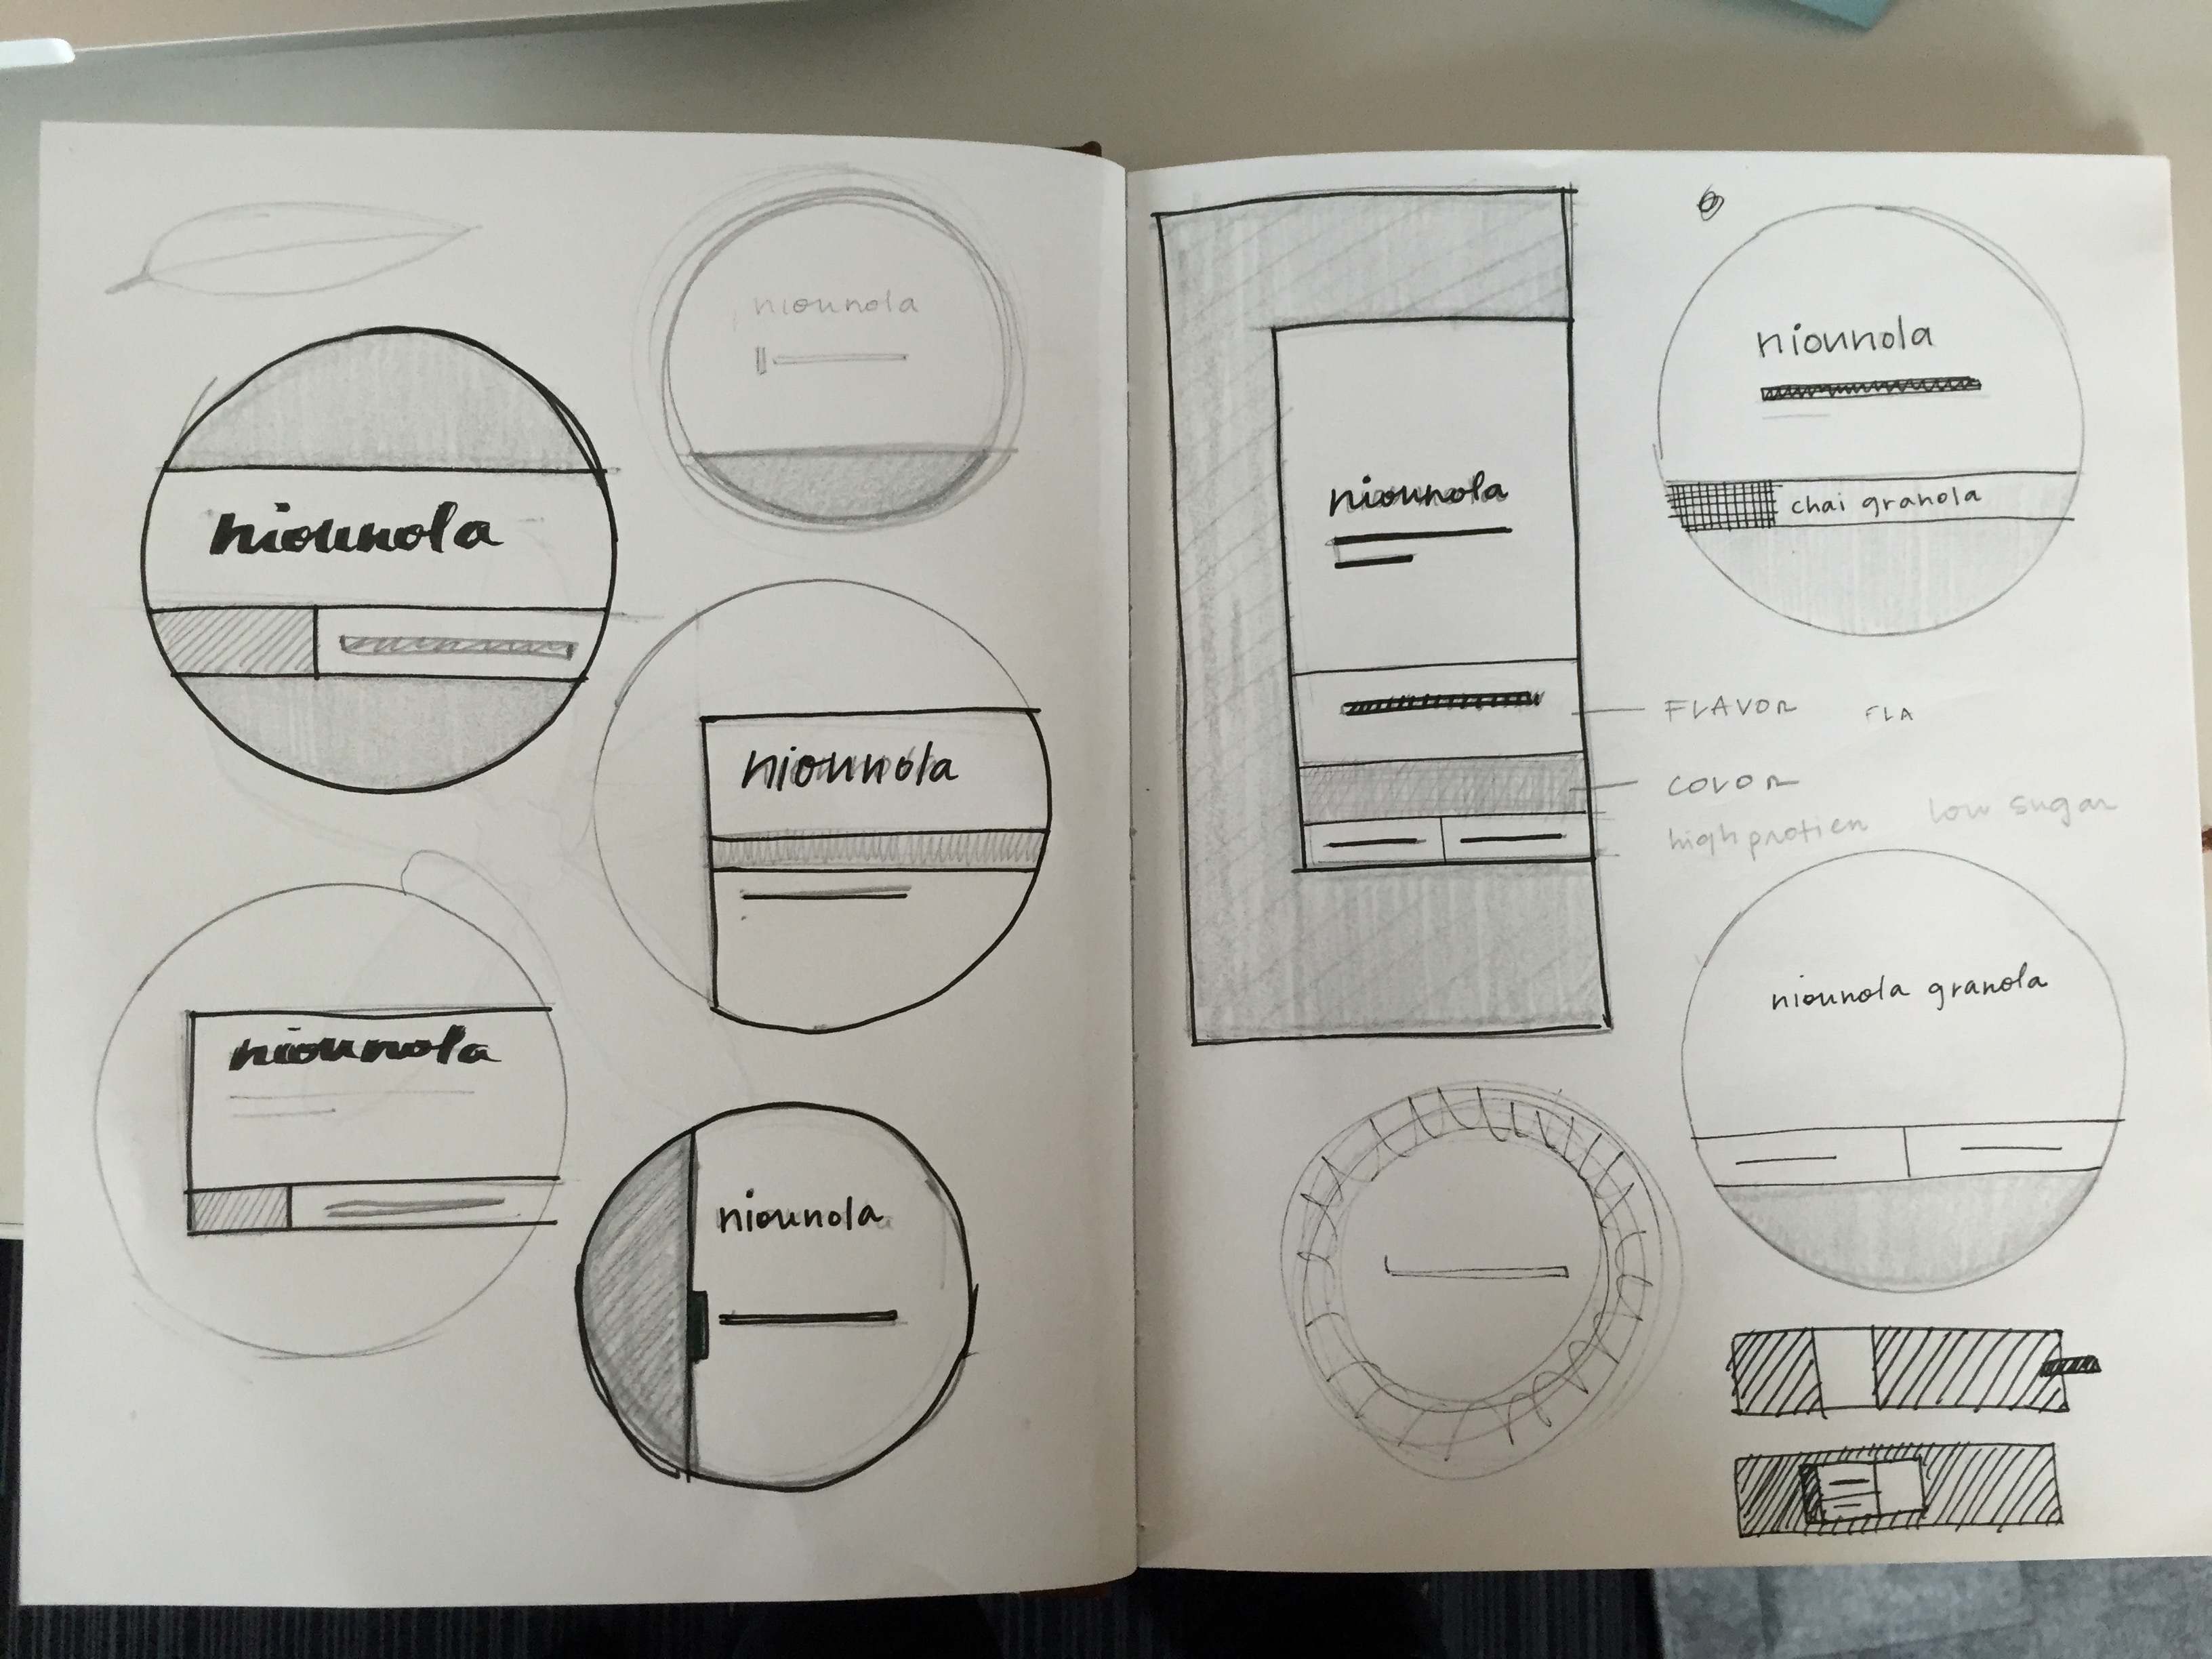 niounola
niounola
niounola
niounola
niounola
niounola
niounola
chai granola
FLAVOR FLA
COLOR
high protien low sugar
niounola granola